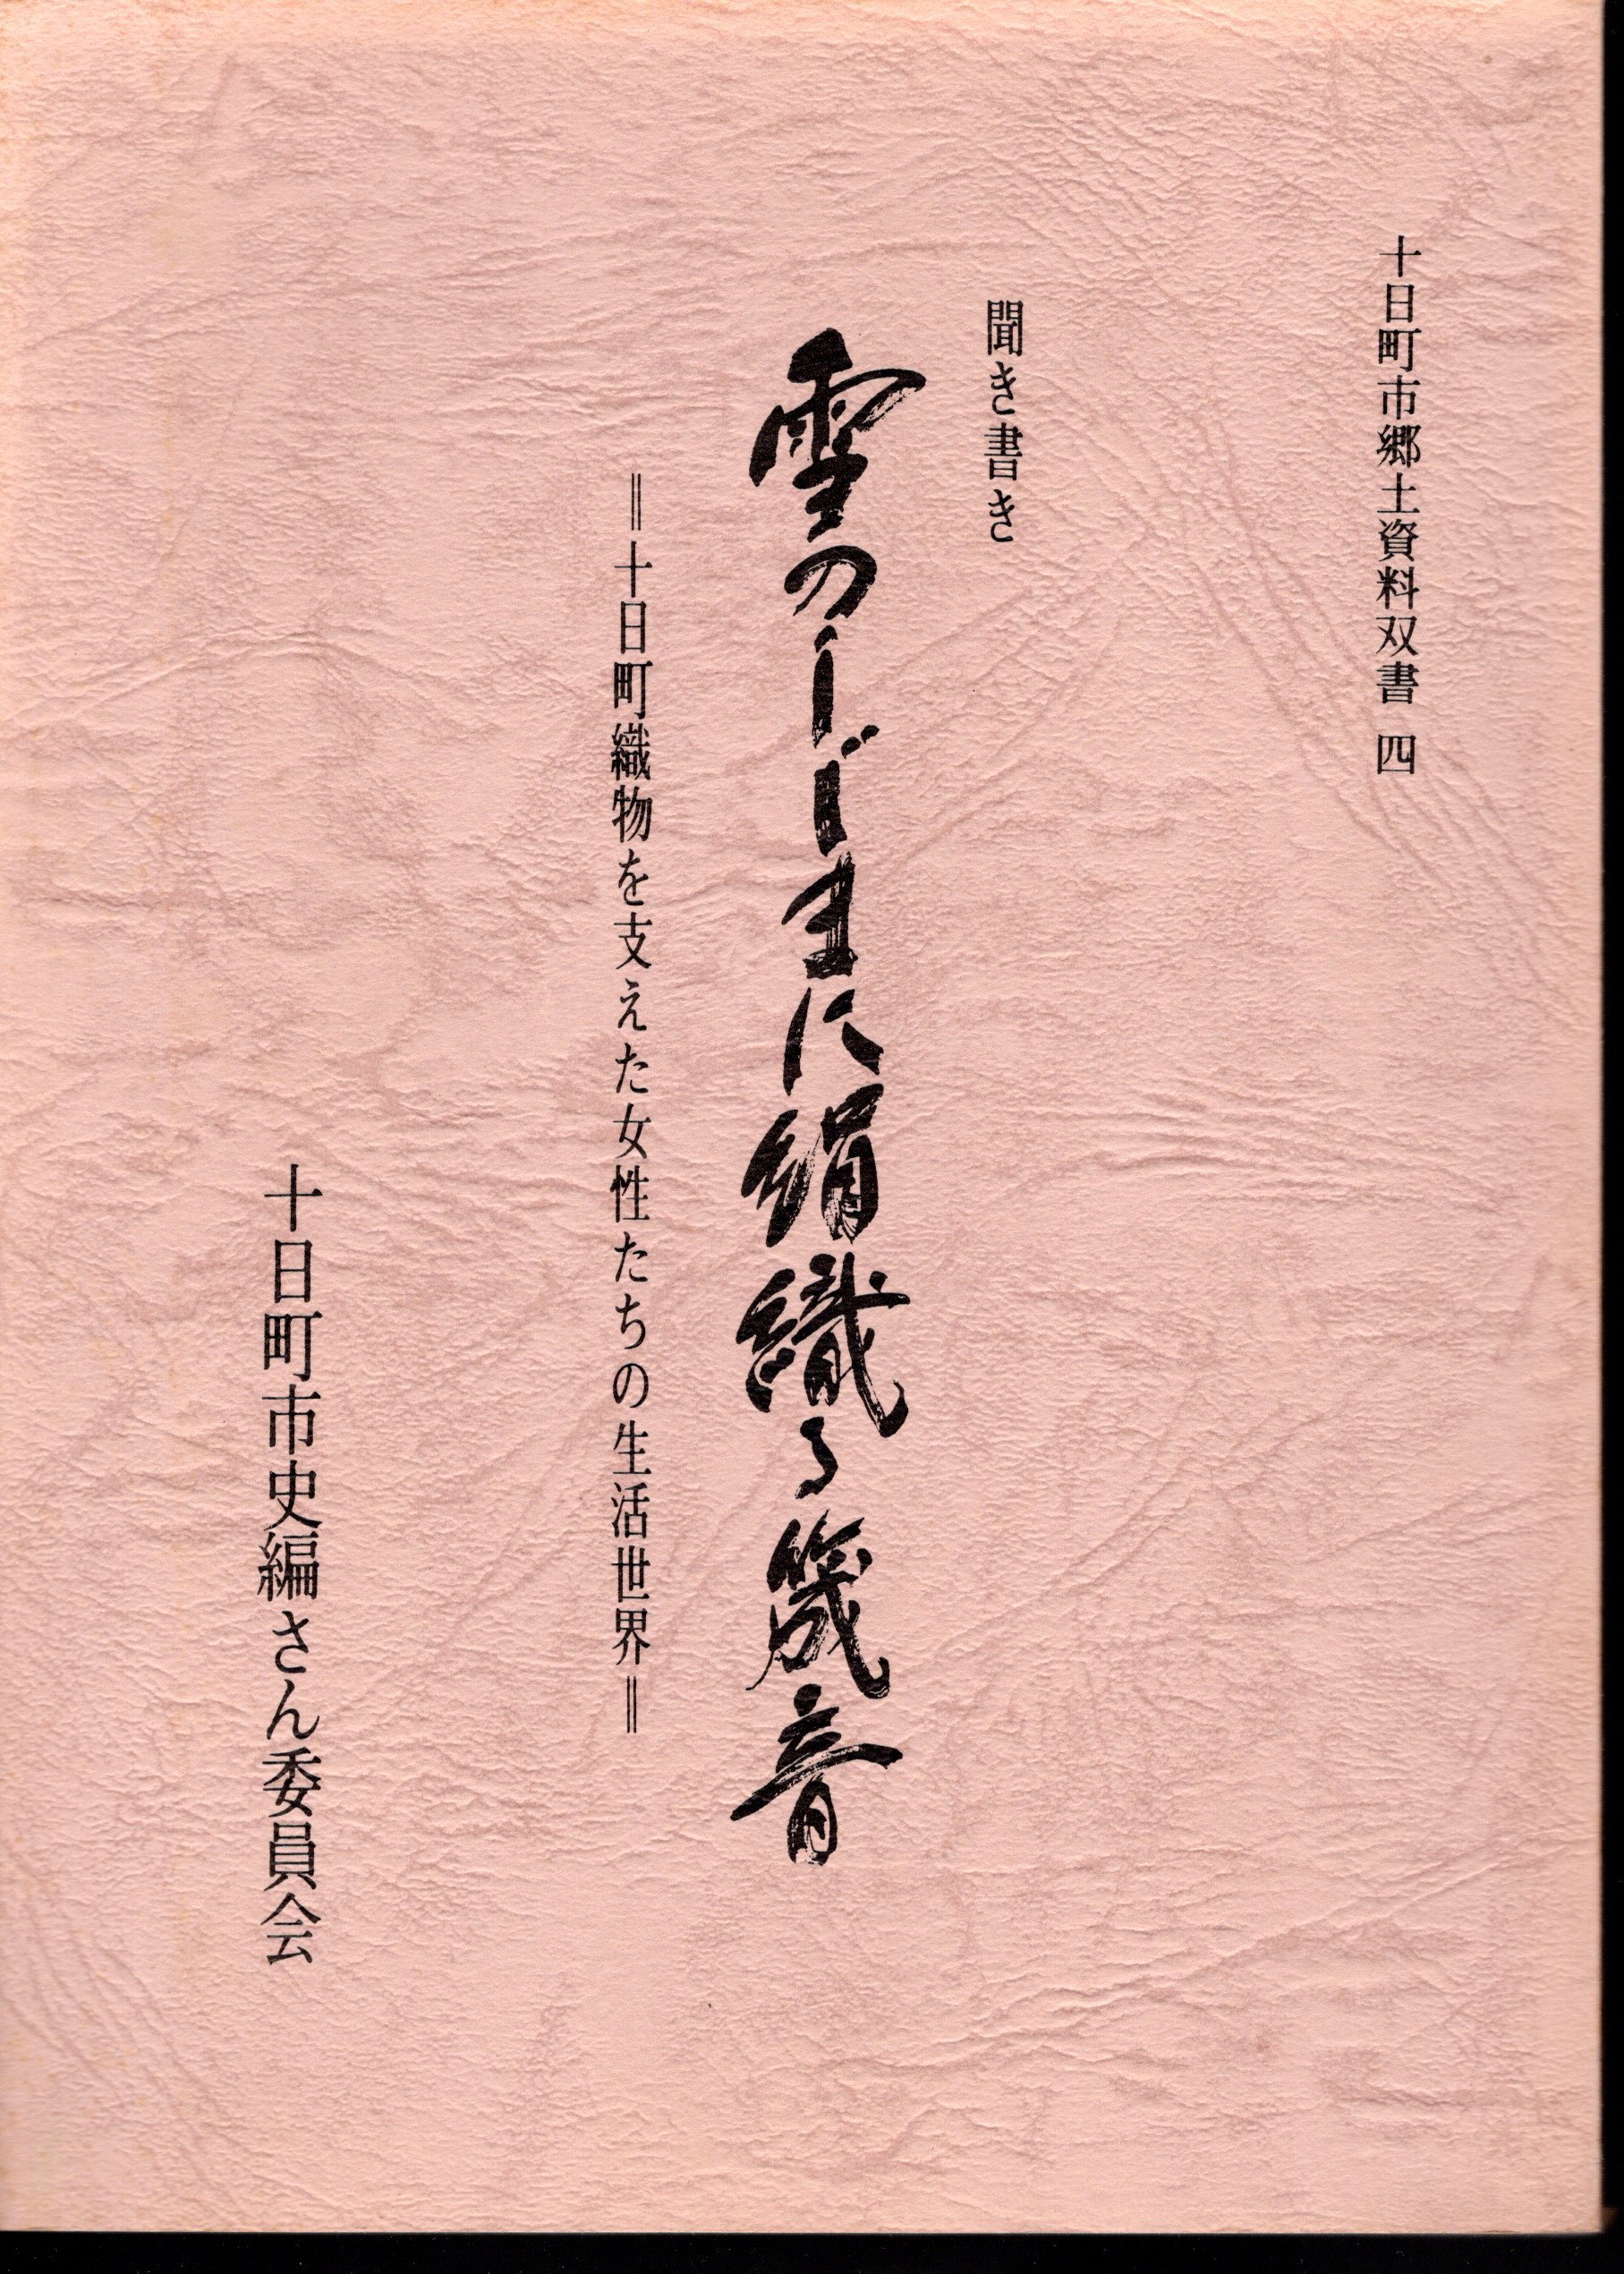 十日町市郷土資料双書 四
聞き書き
雪のしじまに絹織る筬音
＝十日町織物を支えた女性たちの生活世界＝
十日町市史編さん委員会